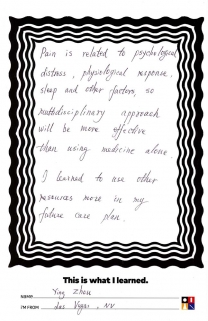 Pain is related to psychological
distress, physiological response,
sleep and other factors, so
multidisciplinary approach
will be more effective
than using medicine alone.
I learned to use other
resources more in my
future care plan.
This is what I learned.
NAME Ying Zhou
I'M FROM Las Vegas, NV